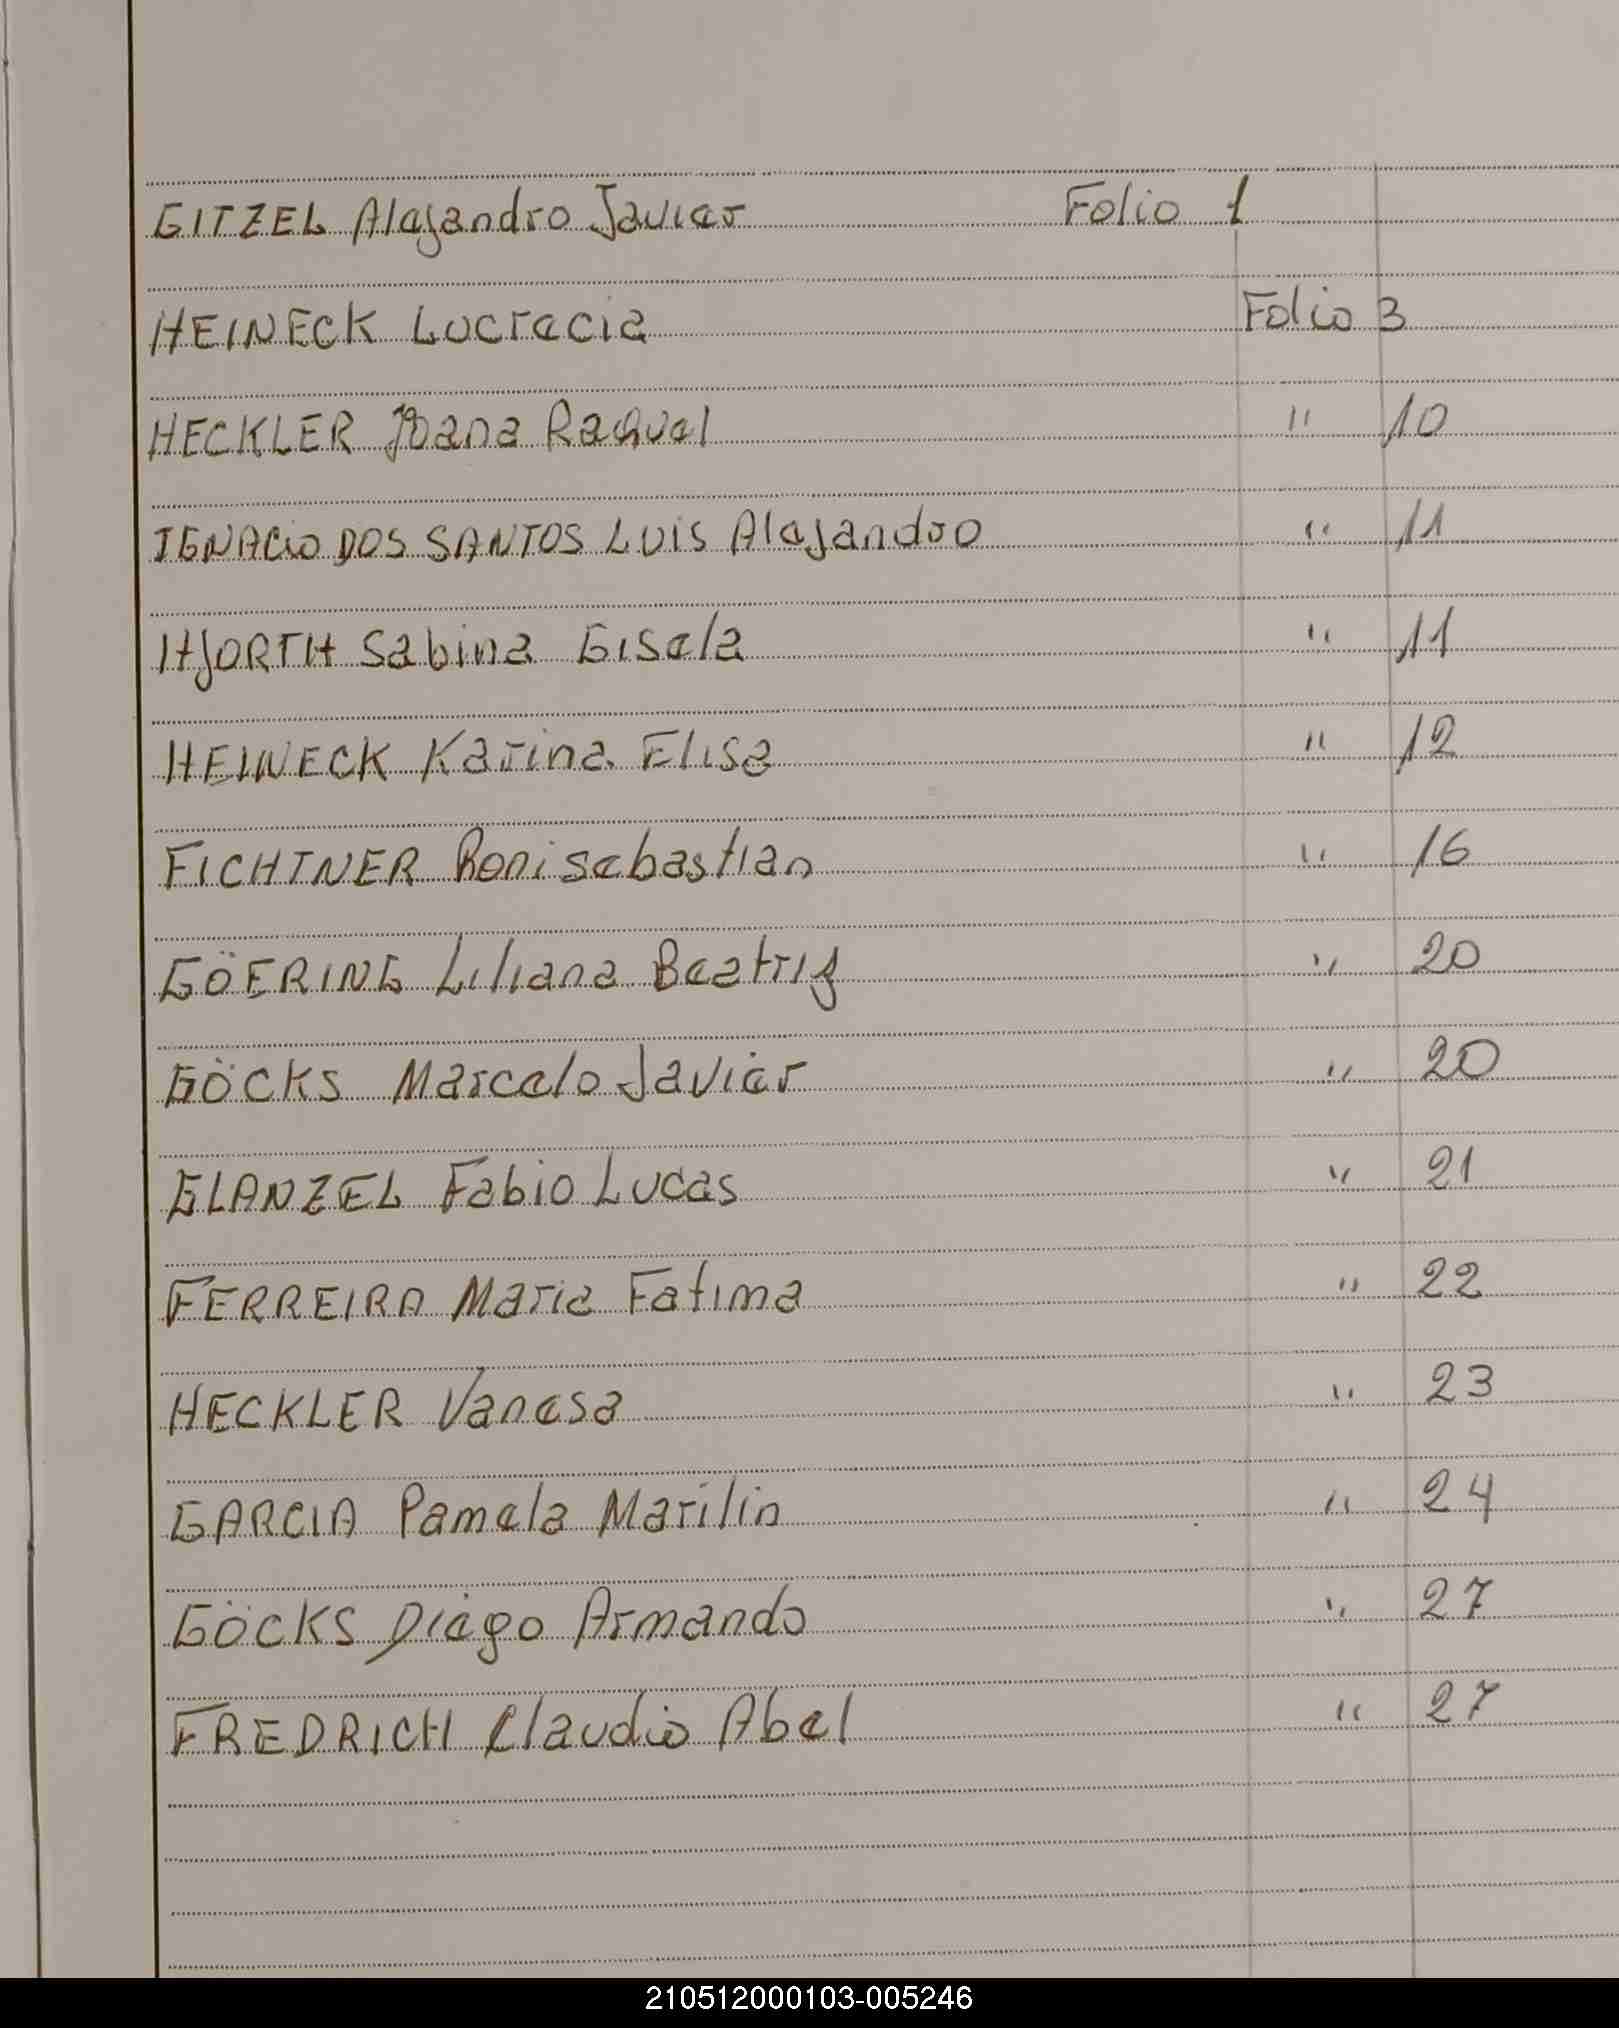 GITZEL Alejandro Javier Folio 1
HEINECK Lucrecia Folio 3
HECKLER Joana Raquel " 10
IGNACIO DOS SANTOS LUIS Alejandro " 11
HJORTH Sabina Gisela " 11
HEINECK Karina Elisa " 12
FICHTNER Roni sebastian " 16
GÖERING Liliana Beatriz " 20
GÖCKS Marcelo Javier " 20
GLANZEL Fabio Lucas " 21
FERREIRA Maria Fatima " 22
HECKLER Vanesa " 23
GARCIA Pamela Marilin " 24
GÖCKS Diego Armando " 27
FREDRICH Claudio Abel " 27
210512000103-005246